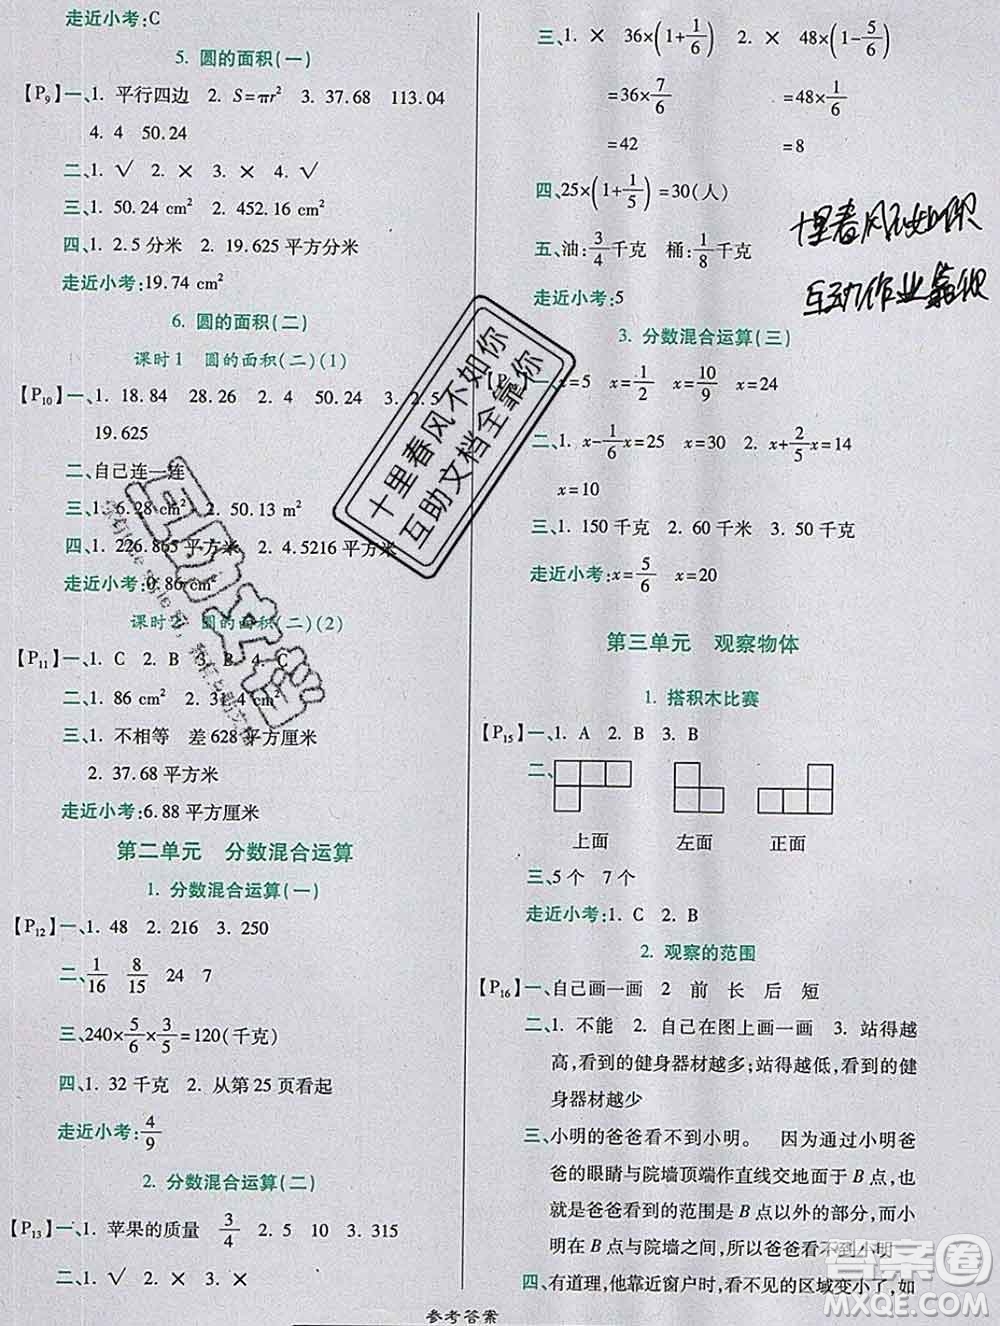 走近小考:C
5. 圆的面积(一)
【P9】一、1. 平行四边 2. S=πr² 3. 37.68 113.04
4. 4 50.24
二、1. √ 2. × 3. × 4. √
三、1. 50.24 cm² 2. 452.16 cm²
四、1. 2.5分米 2. 19.625平方分米
走近小考:19.74 cm²
6. 圆的面积(二)
课时1 圆的面积(二)(1)
【P10】一、1. 18.84 28.26 2. 4 50.24 3. 2.5
19.625
二、自己连一连
三、1. 6.28 cm² 2. 50.13 m²
四、1. 226.865平方米 2. 4.5216平方米
走近小考:0.86 cm²
课时2 圆的面积(二)(2)
【P11】一、1. C 2. B 3. B 4. C
二、1. 86 cm² 2. 31.4 cm²
三、1. 不相等 差628平方厘米
2. 37.68平方米
走近小考:6.88平方厘米
第二单元 分数混合运算
1. 分数混合运算(一)
【P12】一、1. 48 2. 216 3. 250
二、1/16 8/15 24 7
三、240×5/6×3/5=120(千克)
四、1. 32千克 2. 从第25页看起
走近小考:4/9
2. 分数混合运算(二)
【P13】一、1. 苹果的质量 3/4 2. 5 10 3. 315
二、1. √ 2. × 3. ×
三、1. × 36×(1+1/6) 2. × 48×(1-5/6)
=36×7/6 =48×1/6
=42 =8
四、25×(1+1/5)=30(人)
五、油:3/4千克 桶:1/8千克
走近小考:5
3. 分数混合运算(三)
x=5 x=1/2 x=10/9 x=24
二、1. x-1/6x=25 x=30 2. x+2/5x=14
x=10
三、1. 150千克 2. 60千米 3. 50千克
走近小考:x=5/6 x=20
第三单元 观察物体
1. 搭积木比赛
【P15】一、1. A 2. B 3. B
二、
上面 左面 正面
三、5个 7个
走近小考:1. C 2. B
2. 观察的范围
【P16】一、自己画一画 2 前 长 后 短
二、1. 不能 2. 自己在图上画一画 3. 站得越
高,看到的健身器材越多;站得越低,看到的健
身器材越少
三、小明的爸爸看不到小明。 因为通过小明爸
爸的眼睛与院墙顶端作直线交地面于B点,这
就是爸爸看到的范围是B点以外的部分,而小
明在B点与院墙之间,所以爸爸看不到小明
四、有道理,他靠近窗户时,看不见的区域变小了,如
参考答案
十里春风不如你
互助文档全靠你
十里春风不如你
互动作业靠你
互助文档
答案圈
MXQE.COM